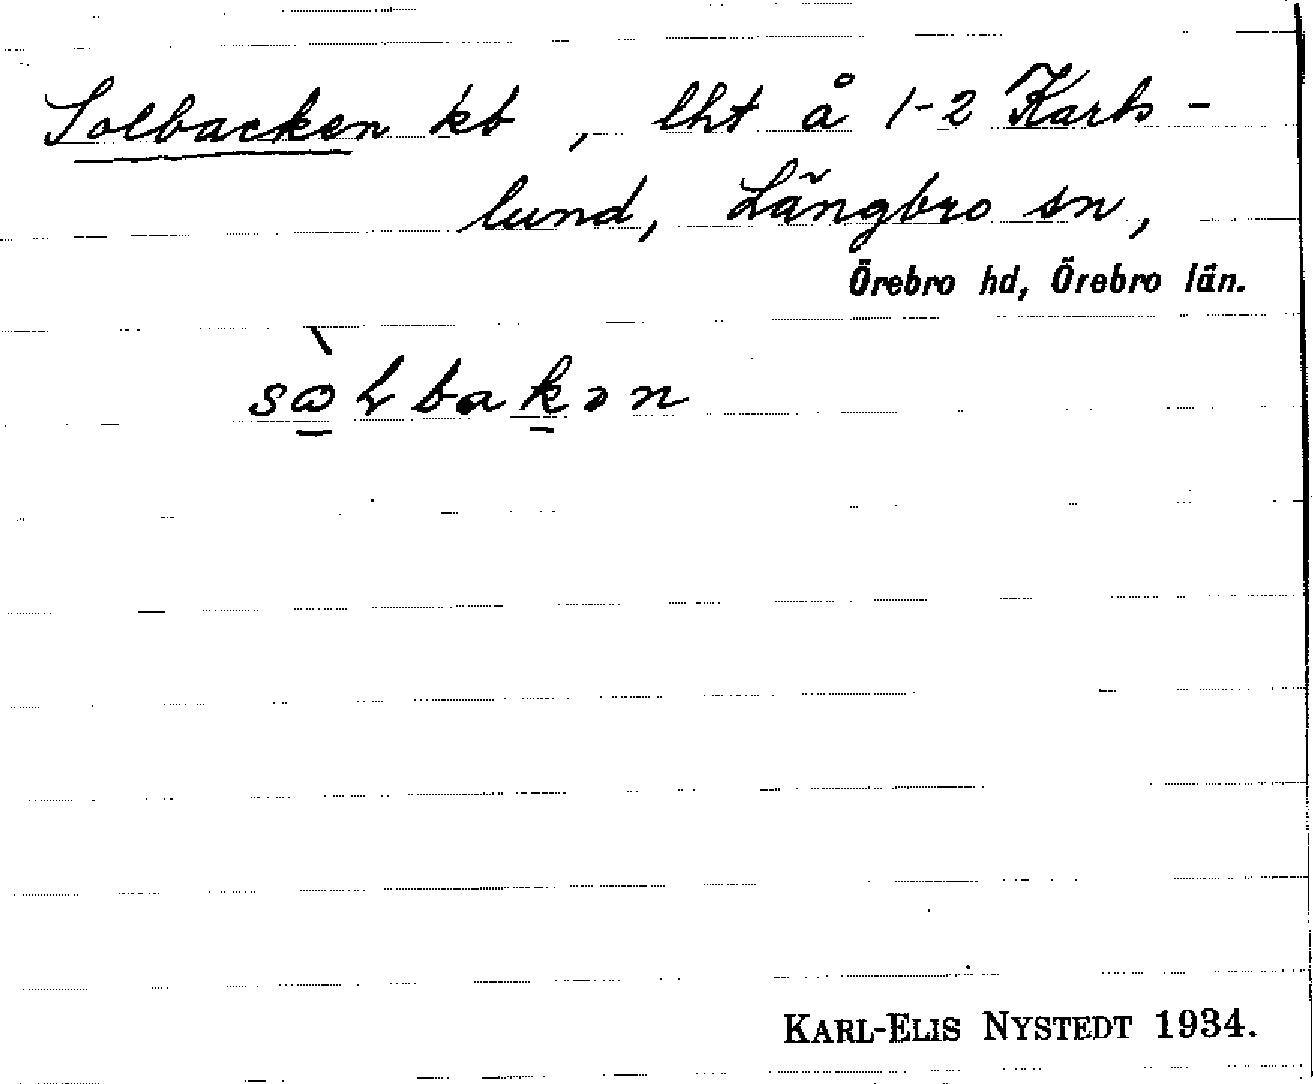 Solbacken kt, lht å 1-2 Karls-
lund, Längbro sn,
Örebro hd, Örebro län.
sὼⱡbakən
KARL-ELIS NYSTEDT 1934.